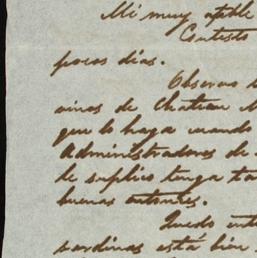 Mi muy apble
Contesto
pocos dias.
Observo
vinos de Chateau
que lo haga cuando
Administradores de
le suplico tenga
buenas
Quedo
sardinas está bien